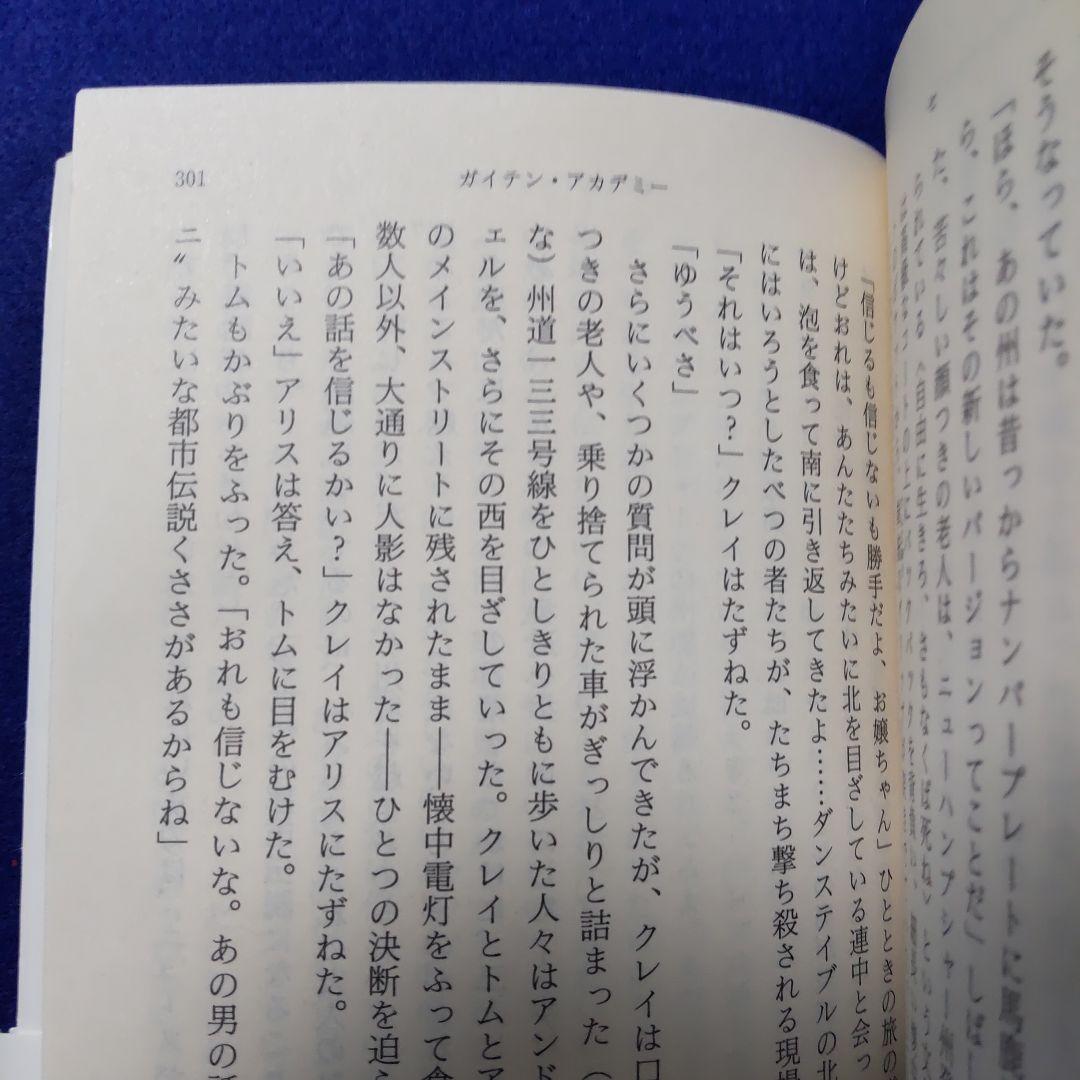 そうなっていた。
「ほら、あの州は昔っからナンバープレートに
ら、これはその新しいバージョンってことだ」しば
た、苦々しい顔つきの老人は、ニューハンプシャー州
られている〈自由に生きろ、さもなくば死ね〉という
301
ガイテン・アカデミー
「信じるも信じないも勝手だよ、お嬢ちゃん」ひとときの旅の
けどおれは、あんたたちみたいに北を目ざしている連中と会っ
は、泡を食って南に引き返してきたよ……ダンステイブルの北
にはいろうとしたべつの者たちが、たちまち撃ち殺される現場
「それはいつ?」クレイはたずねた。
「ゆうべさ」
さらにいくつかの質問が頭に浮かんできたが、クレイは口
つきの老人や、乗り捨てられた車がぎっしりと詰まった(
な)州道一三三号線をひとしきりともに歩いた人々はアンド
ェルを、さらにその西を目ざしていった。クレイとトムとア
のメインストリートに残されたまま――懐中電灯をふって食
数人以外、大通りに人影はなかった――ひとつの決断を迫
「あの話を信じるかい?」クレイはアリスにたずねた。
「いいえ」アリスは答え、トムに目をむけた。
トムもかぶりをふった。「おれも信じないな。あの男の話
ニ〟みたいな都市伝説くささがあるからね」